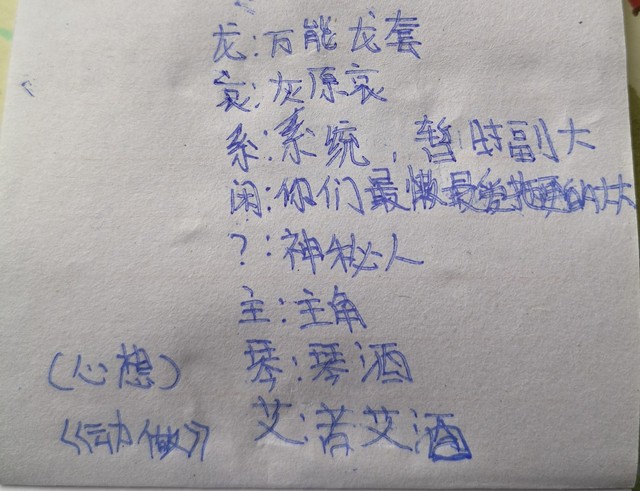 龙:万能龙套
哀:灰原哀
系:系统,暂时副大
闲:你们最懒最爱拖更的大大
?:神秘人
主:主角
(心想) 琴:琴酒
《动做》 艾:苦艾酒